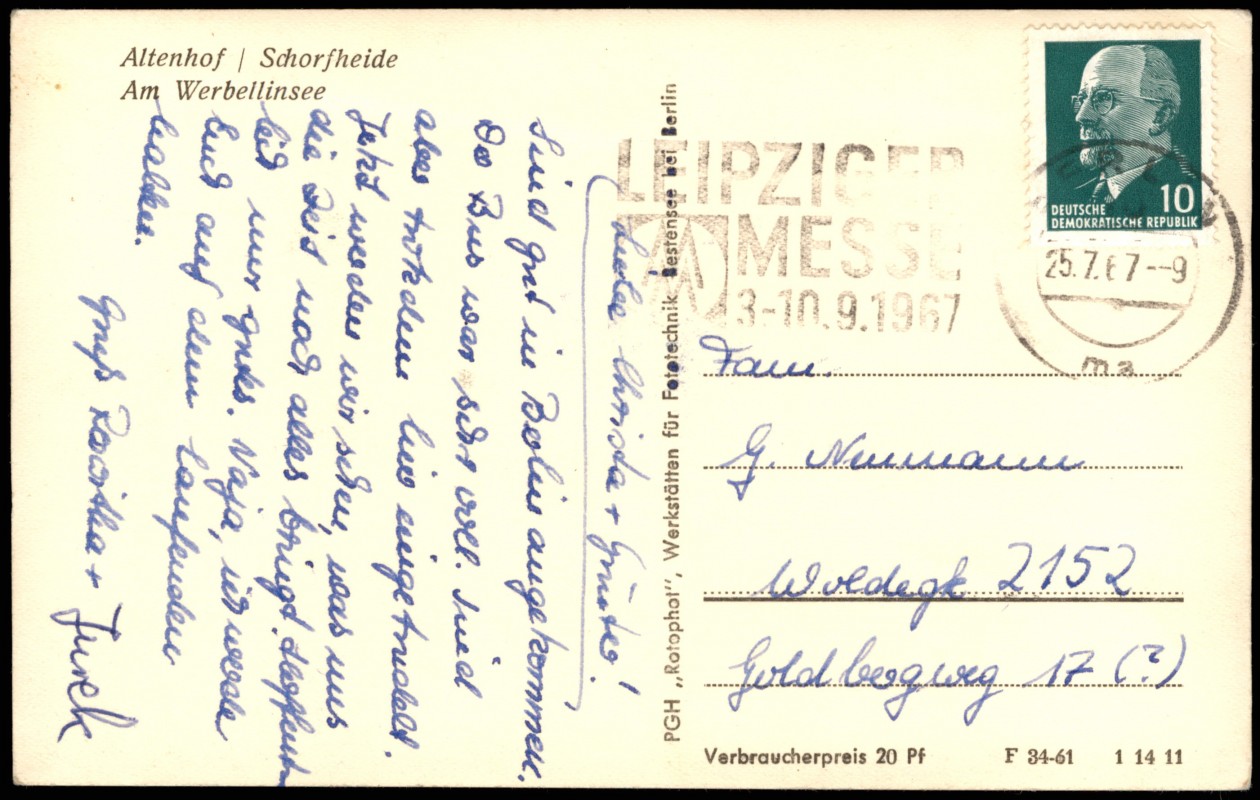 Altenhof / Schorfheide
Am Werbellinsee
Liebe Christa + Günter!
Sind gut in Berlin angekommen.
Der Bus war sehr voll. Sind
aber trotzdem hier eingetrudelt.
Jetzt werden wir sehen, was uns
die Zeit noch alles bringt. Hoffent-
lich nur gutes. Naja, ich werde
Euch auf dem laufenden
halten.
Gruß +
LEIPZIGER
MESSE
3-10.9.1967
10
DEUTSCHE
DEMOKRATISCHE REPUBLIK
BERLIN
25.7.67--9
ma
PGH „Rotophot“, Werkstätten für Fototechnik Bestensee bei Berlin
Fam.
G. Neumann
Woldegk 2152
Goldbergweg 17 (?)
Verbraucherpreis 20 Pf F 34-61 1 14 11